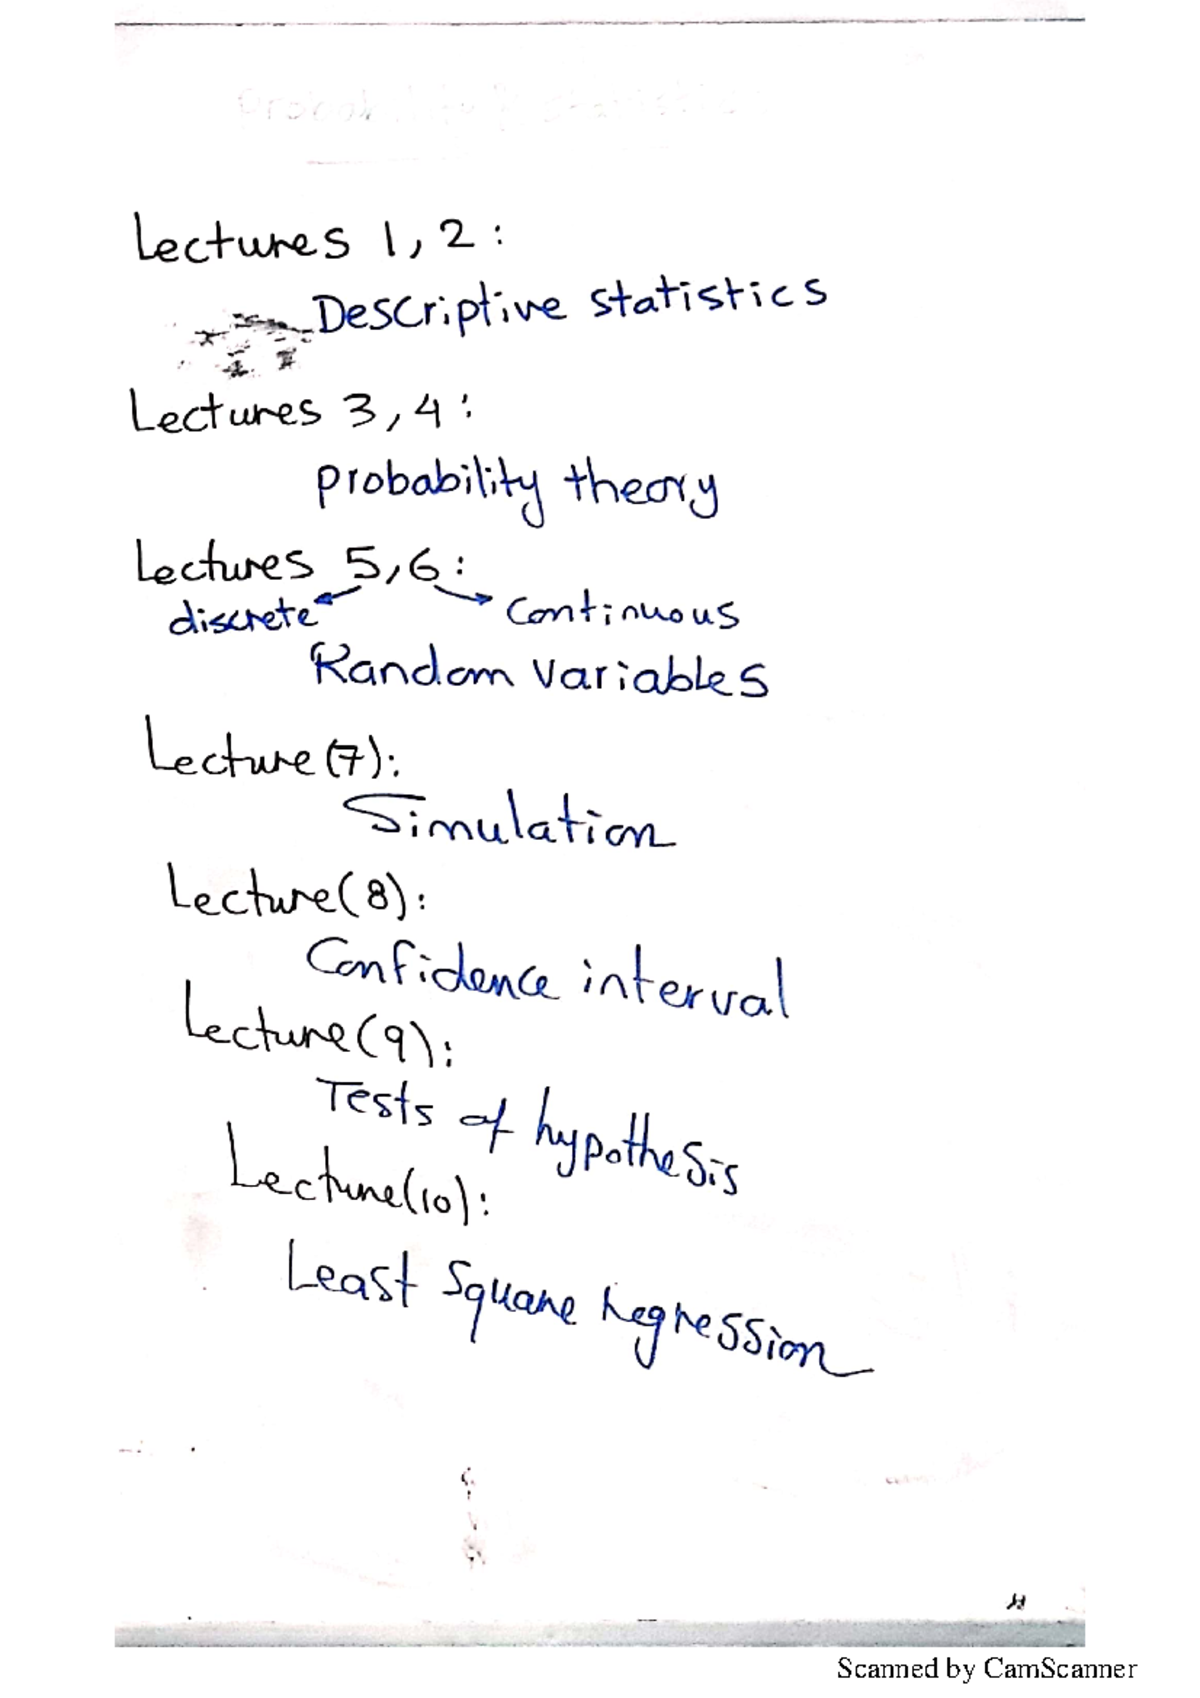 Lectures 1, 2 :
Descriptive statistics
Lectures 3, 4 :
probability theory
Lectures 5, 6 :
discrete continuous
Random variables
Lecture (7) :
Simulation
Lecture (8) :
Confidence interval
Lecture (9) :
Tests of hypothesis
Lecture (10) :
Least Square Regression
Scanned by CamScanner